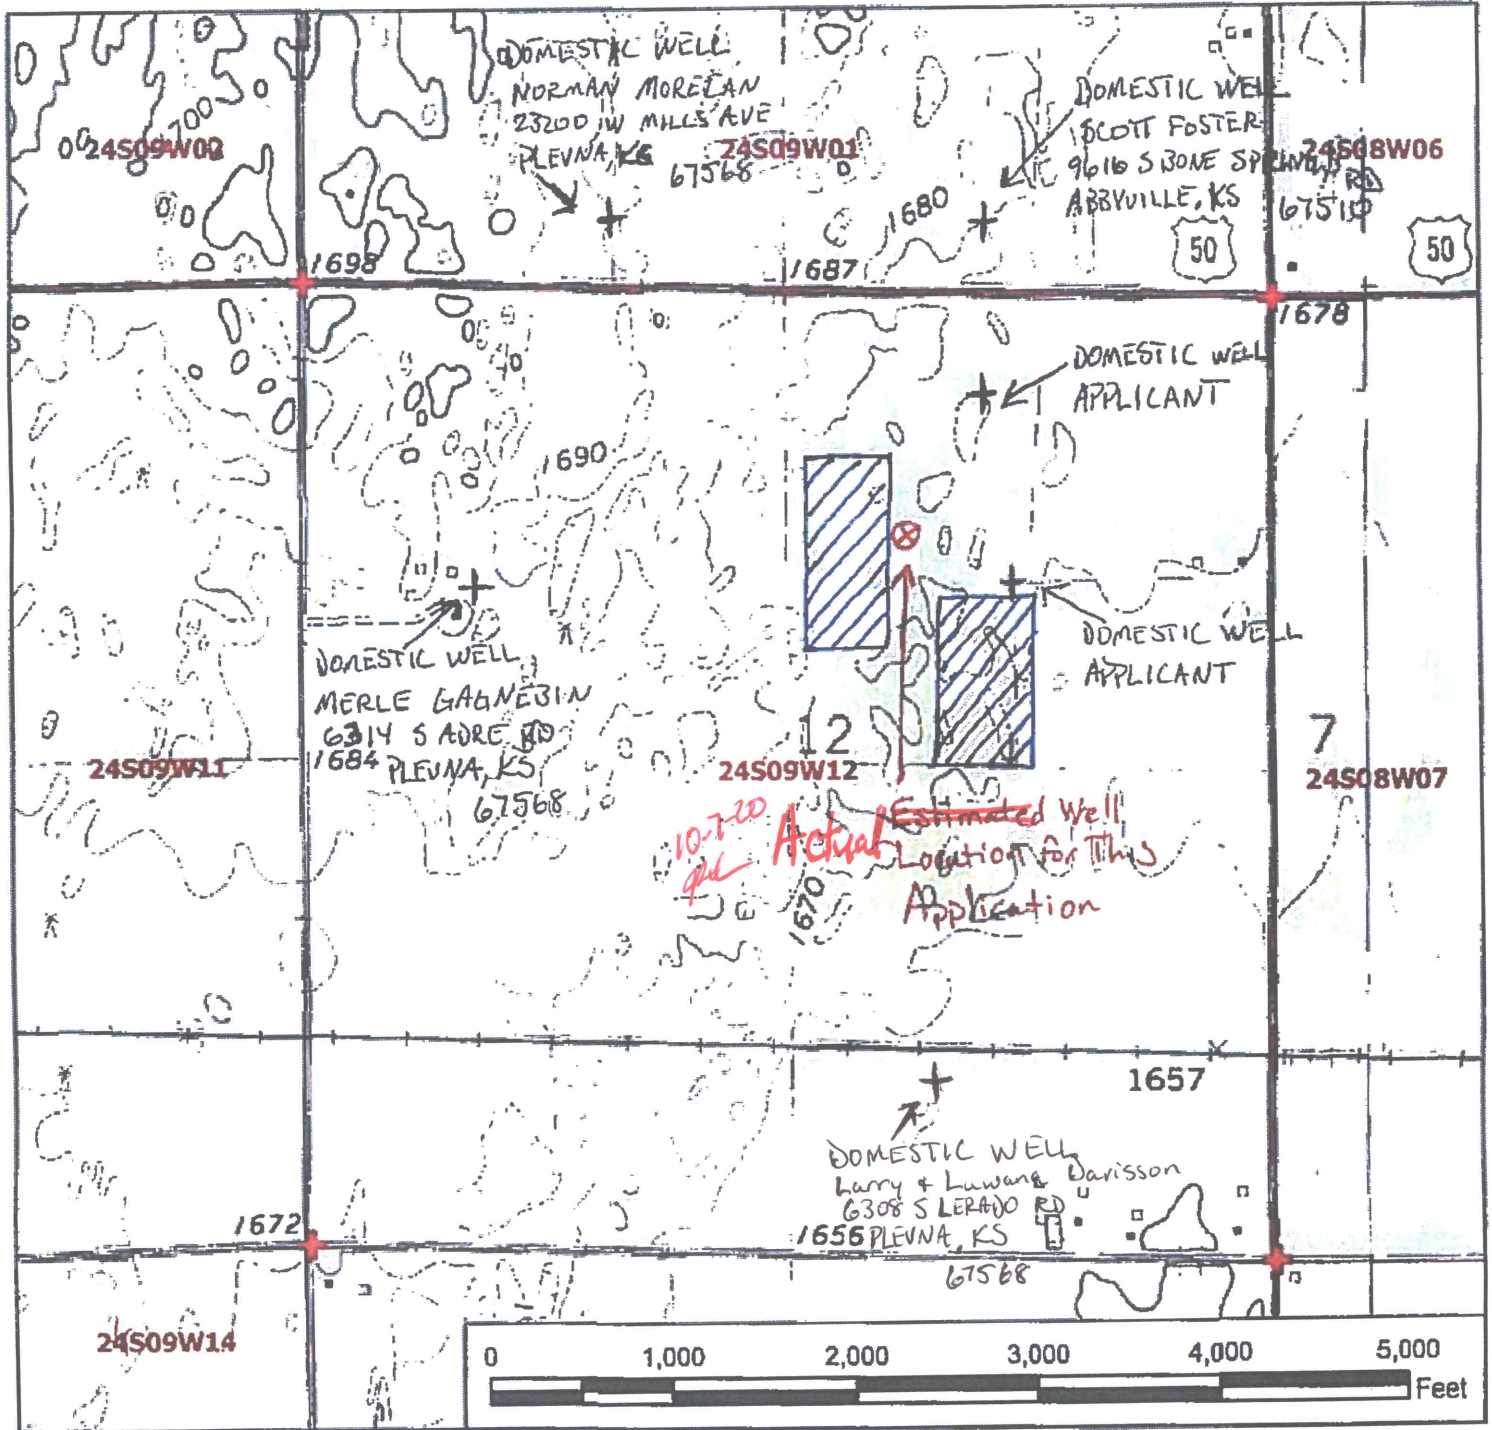 DOMESTIC WELL
NORMAN MORELAN
23200 W MILLS AVE
PLEVNA, KS
67568
DOMESTIC WELL
SCOTT FOSTER
9616 S BONE SPRINGS
RD
ABBYVILLE, KS
67510
1700
24S09W02
24S09W01
24S08W06
1680
50
50
1698
1687
1678
DOMESTIC WELL
APPLICANT
1690
DOMESTIC WELL
APPLICANT
DOMESTIC WELL
MERLE GAGNEBIN
6314 S ADRE RD
PLEVNA, KS
67568
1684
12
7
24S09W11
24S09W12
24S08W07
10-7-20
Actual Estimated Well
Location for This
Application
1670
1657
DOMESTIC WELL
Larry & Luwana Davisson
6308 S LERADO RD
PLEVNA, KS
67568
1672
1656
24S09W14
0 1,000 2,000 3,000 4,000 5,000
Feet